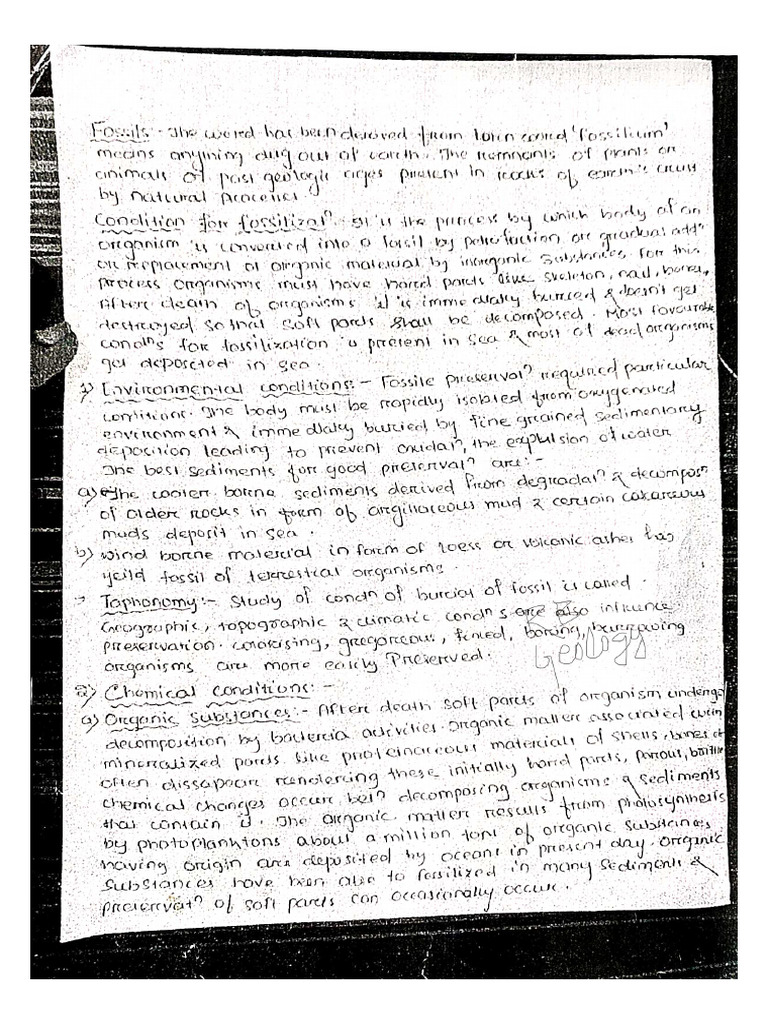 Fossils - The word has been derived from latin word 'fossilium'
means anything dug out of earth. The remnants of plants or
animals of past geologic ages present in rocks of earth's crust
by natural processes.
Condition for fossilizaⁿ - It is the process by which body of an
organism is converted into a fossil by petrifaction or gradual addⁿ
or replacement of organic material by inorganic substances. For this
process organisms must have hard parts like skeleton, nail, bones,
After death of organisms it is immediatly burried & doesn't get
destroyed so that soft parts shall be decomposed. Most favourable
condⁿs for fossilization is present in sea & most of dead organisms
get deposited in sea.
1) Environmental conditions:- Fossile preservaⁿ required particular
conditions. The body must be rapidly isolated from oxygenated
environment & immediatly buried by fine grained sedimentary
deposition leading to prevent oxidaⁿ, the explulsion of water
The best sediments for good preservaⁿ are:-
a) The water borne sediments derived from degradaⁿ & decomposⁿ
of older rocks in form of argillaceous mud & certain calcareous
muds deposit in sea.
b) Wind borne material in form of loess or volcanic ashes has
yeild fossil of terrestrial organisms.
Taphonomy:- Study of condⁿ of burial of fossil is called.
Geographic, topographic & climatic condⁿs are also influence
preservation. gregareous, boring, burrowing
organisms are more easily Preserved.
Geology
2) Chemical conditions:-
a) Organic substances:- After death soft parts of organism undergo
decomposition by bacteria activities. Organic matter associated with
mineralized parts like proteinaceous materials of shells, bones
often dissapear rendering these initially hard parts, porous, brittle
chemical changes occur betⁿ decomposing organisms & sediments
that contain it. The organic matter results from photosynthesis
by photoplanktons about a million tons of organic substances
having origin are deposited by oceans in present day. Organic
substances have been able to fossilized in many sediments &
preservatⁿ of soft parts can occasionally occur.